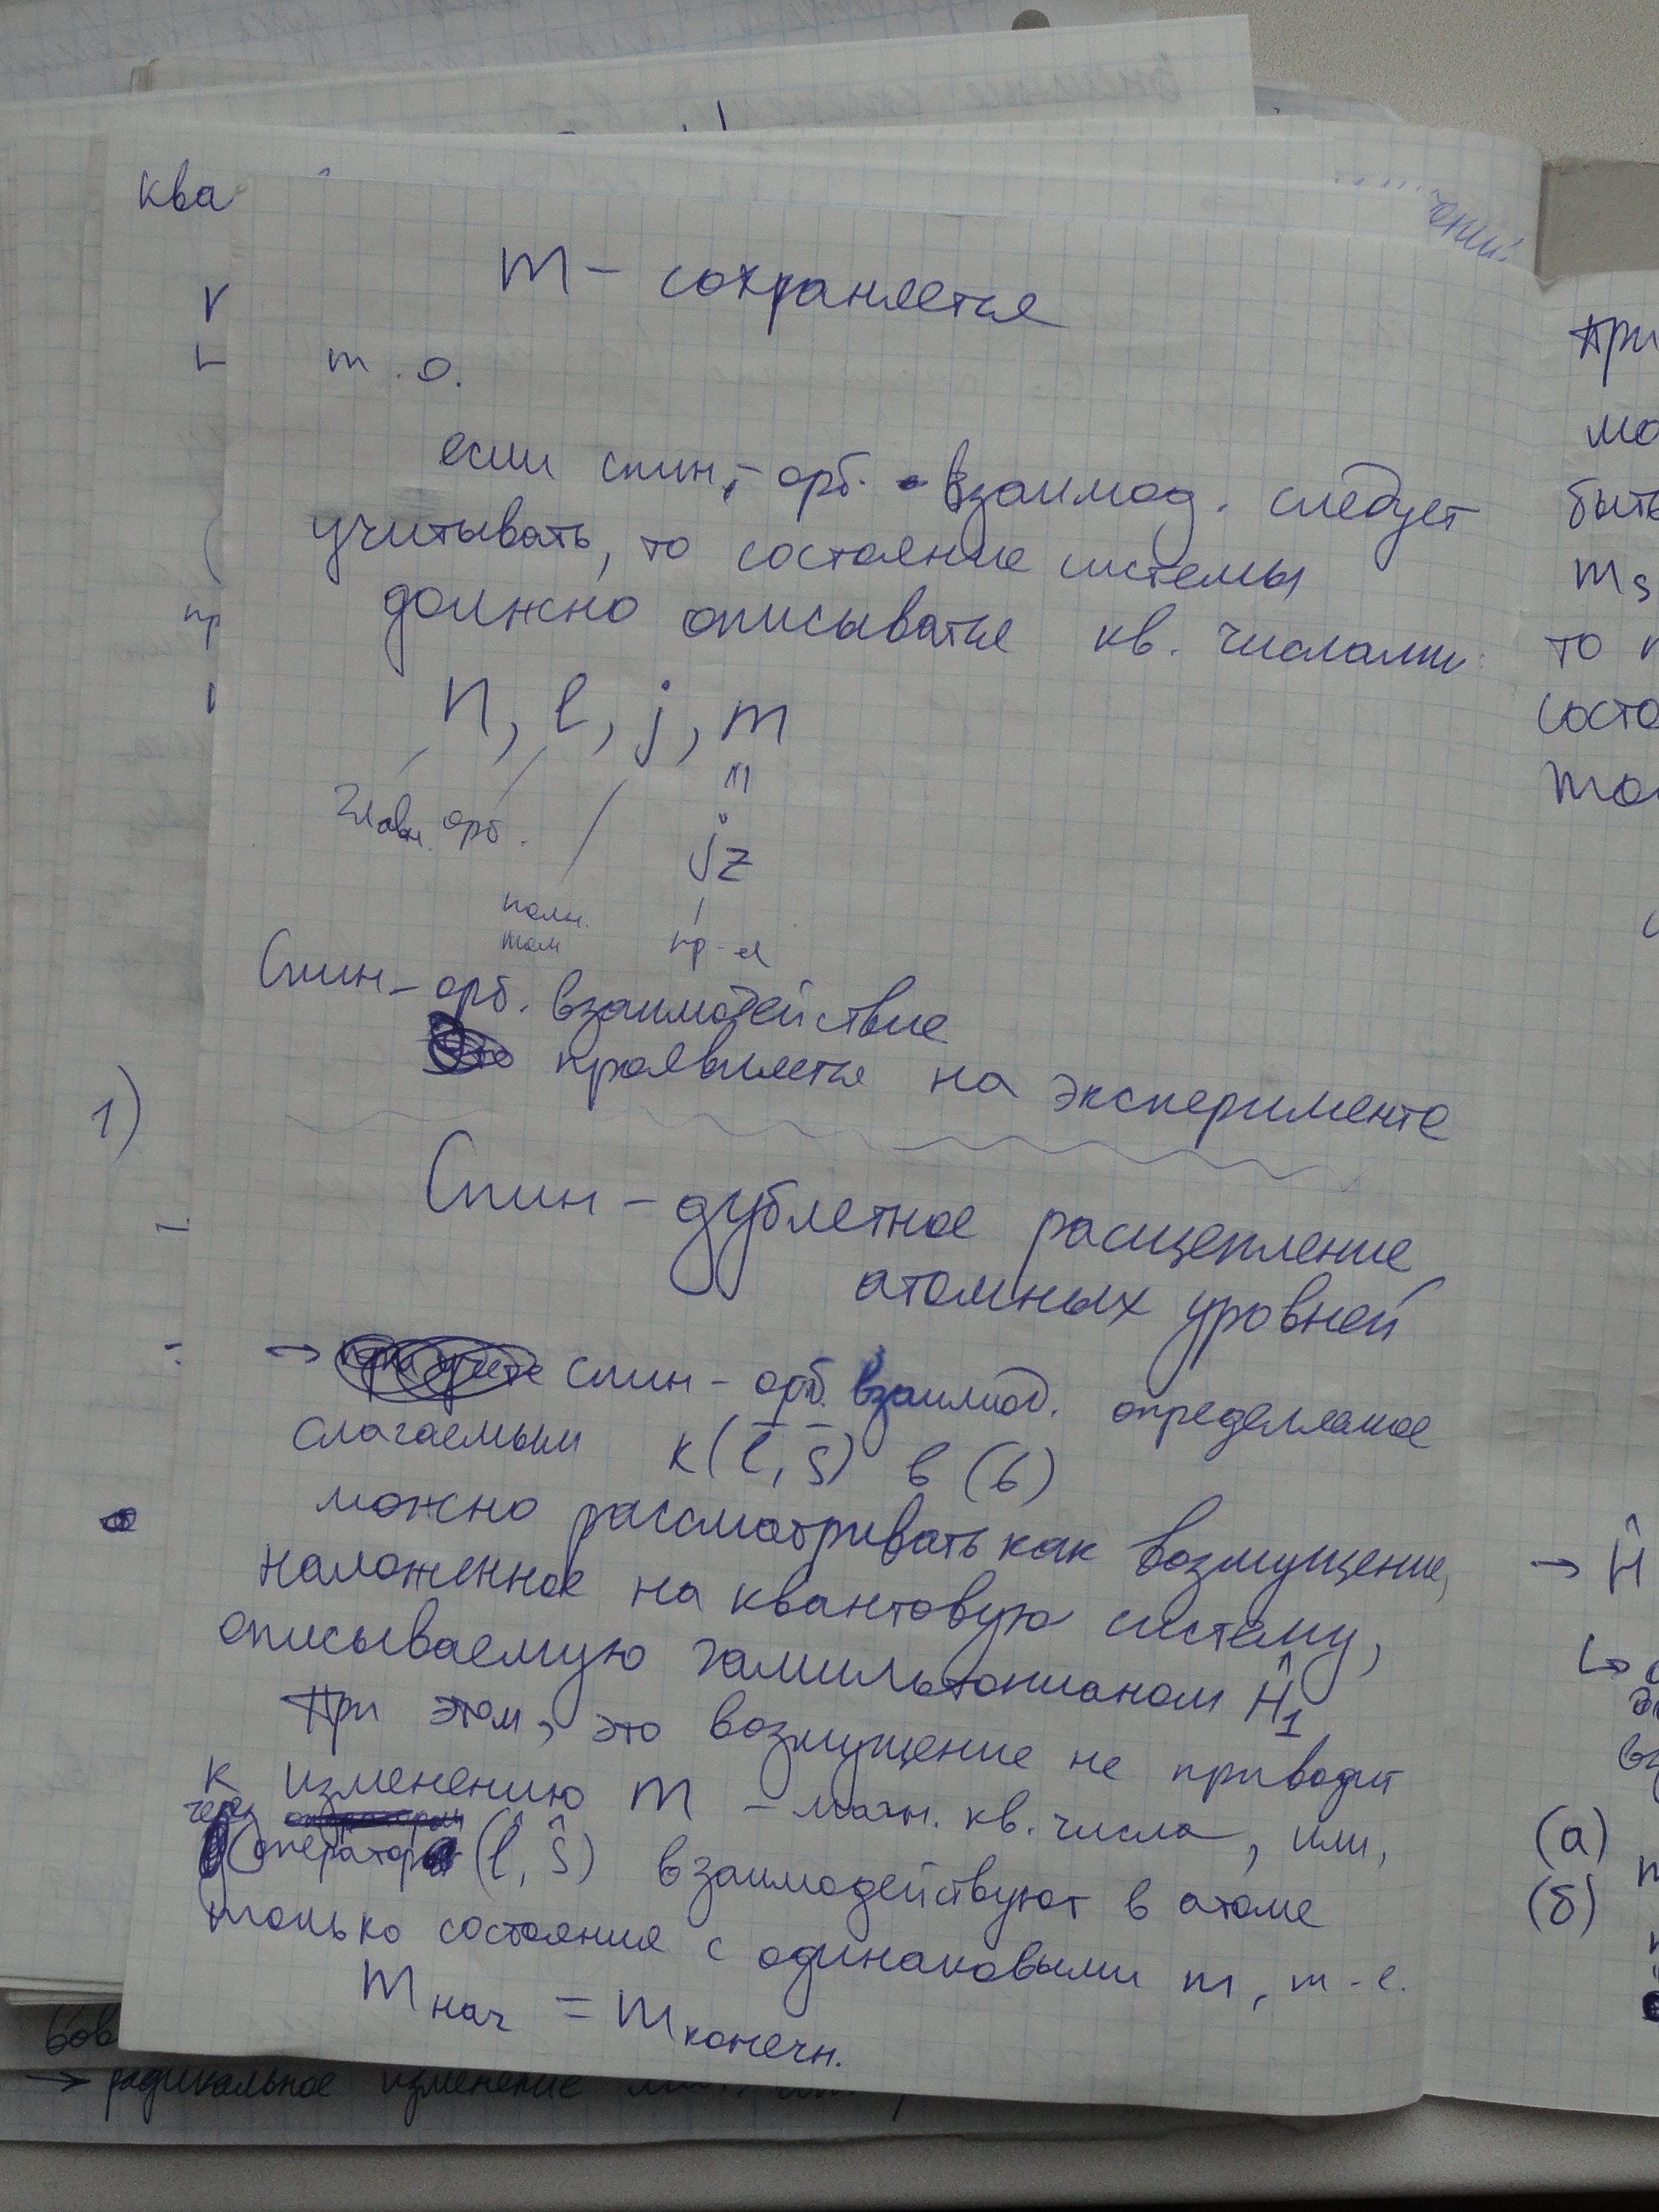 ква
m – сохраняется
т.о.
если спин.-орб. взаимод. следует
учитывать, то состояние системы
должно описываться кв. числами:
n, l, j, m
главн. орб.
jz
полн.
мом
пр-я
Спин-орб. взаимодействие
проявляется на эксперименте
1)
Спин-дублетное расщепление
атомных уровней
→ спин-орб. взаимод. определяемое
слагаемым к(l̄, s̄) в (6)
можно рассматривать как возмущение,
наложенное на квантовую систему,
описываемую гамильтонианом Ĥ1
При этом, это возмущение не приводит
к изменению m – магн. кв. числа, или,
через
оператор (l̂, ŝ) взаимодействуют в атоме
только состояния с одинаковыми m, т-е.
mнач = mконечн.
→ радикальное изменение
при
мо
быть
ms
то
состо
→ Ĥ
(а)
(б)